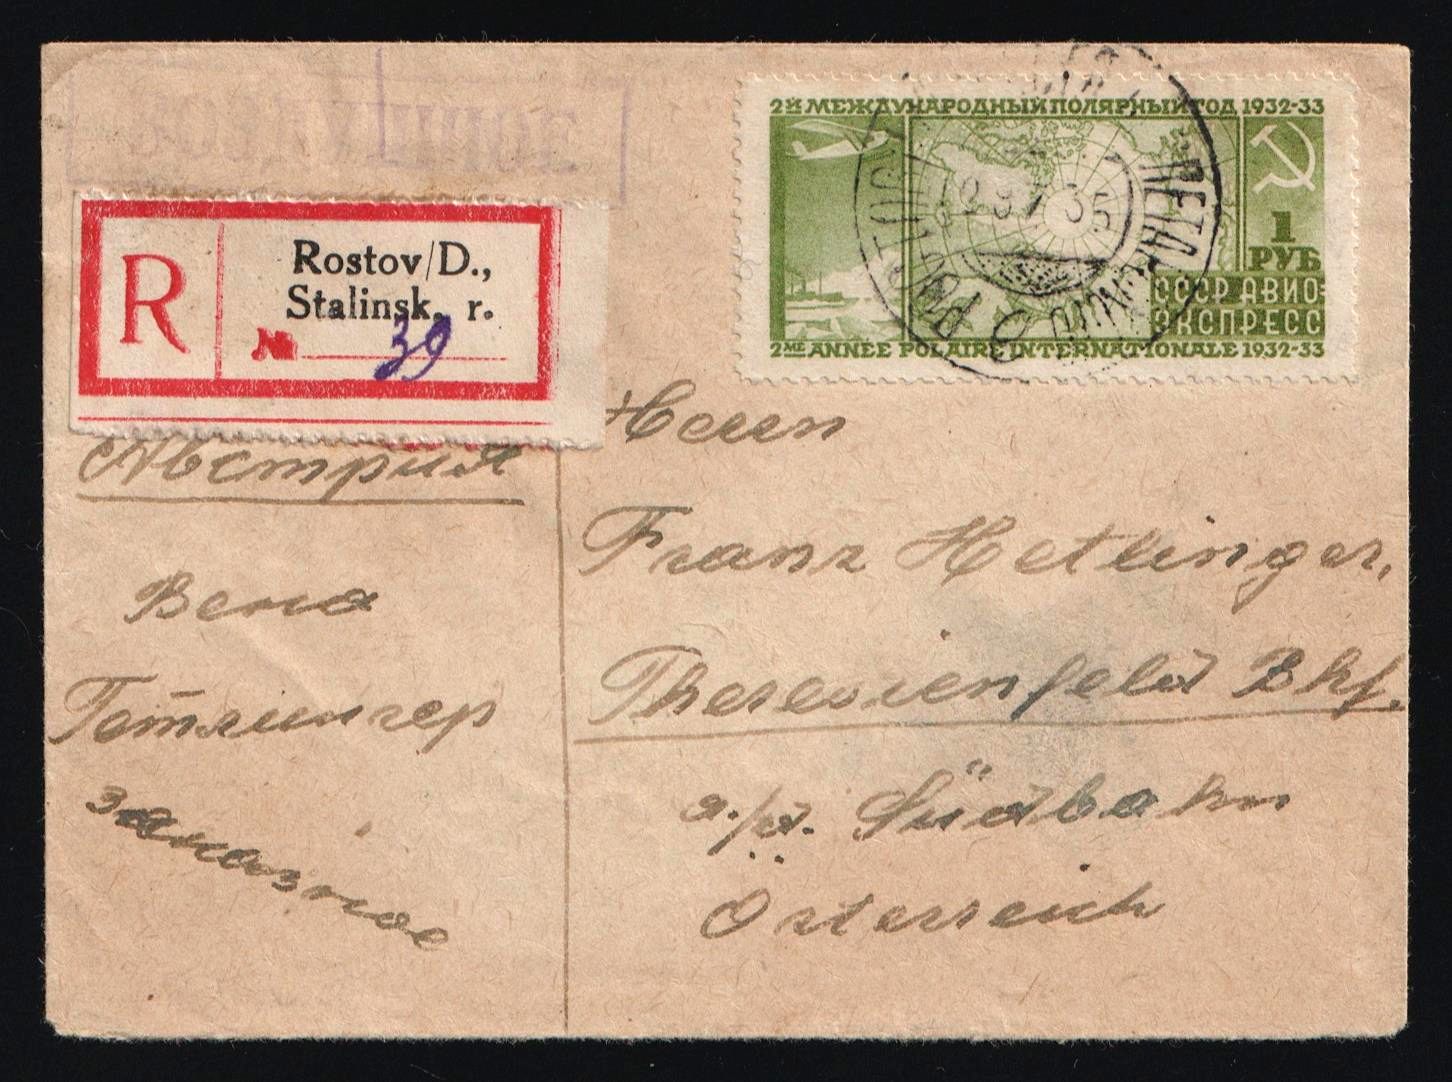 ВОЗДУШНОЕ
2Й МЕЖДУНАРОДНЫЙ ПОЛЯРНЫЙ ГОД 1932-33
1
РУБ
СССР АВИО=
ЭКСПРЕСС
2МЕ ANNÉE POLAIRE INTERNATIONALE 1932-33
R
Rostov/D.,
Stalinsk. r.
№ 39
Австрия
Вена
Гетлингер
заказное
Herrn
Franz Hetlinger,
Theresienfeld Bhf.
a./d. Südbahn
Österreich